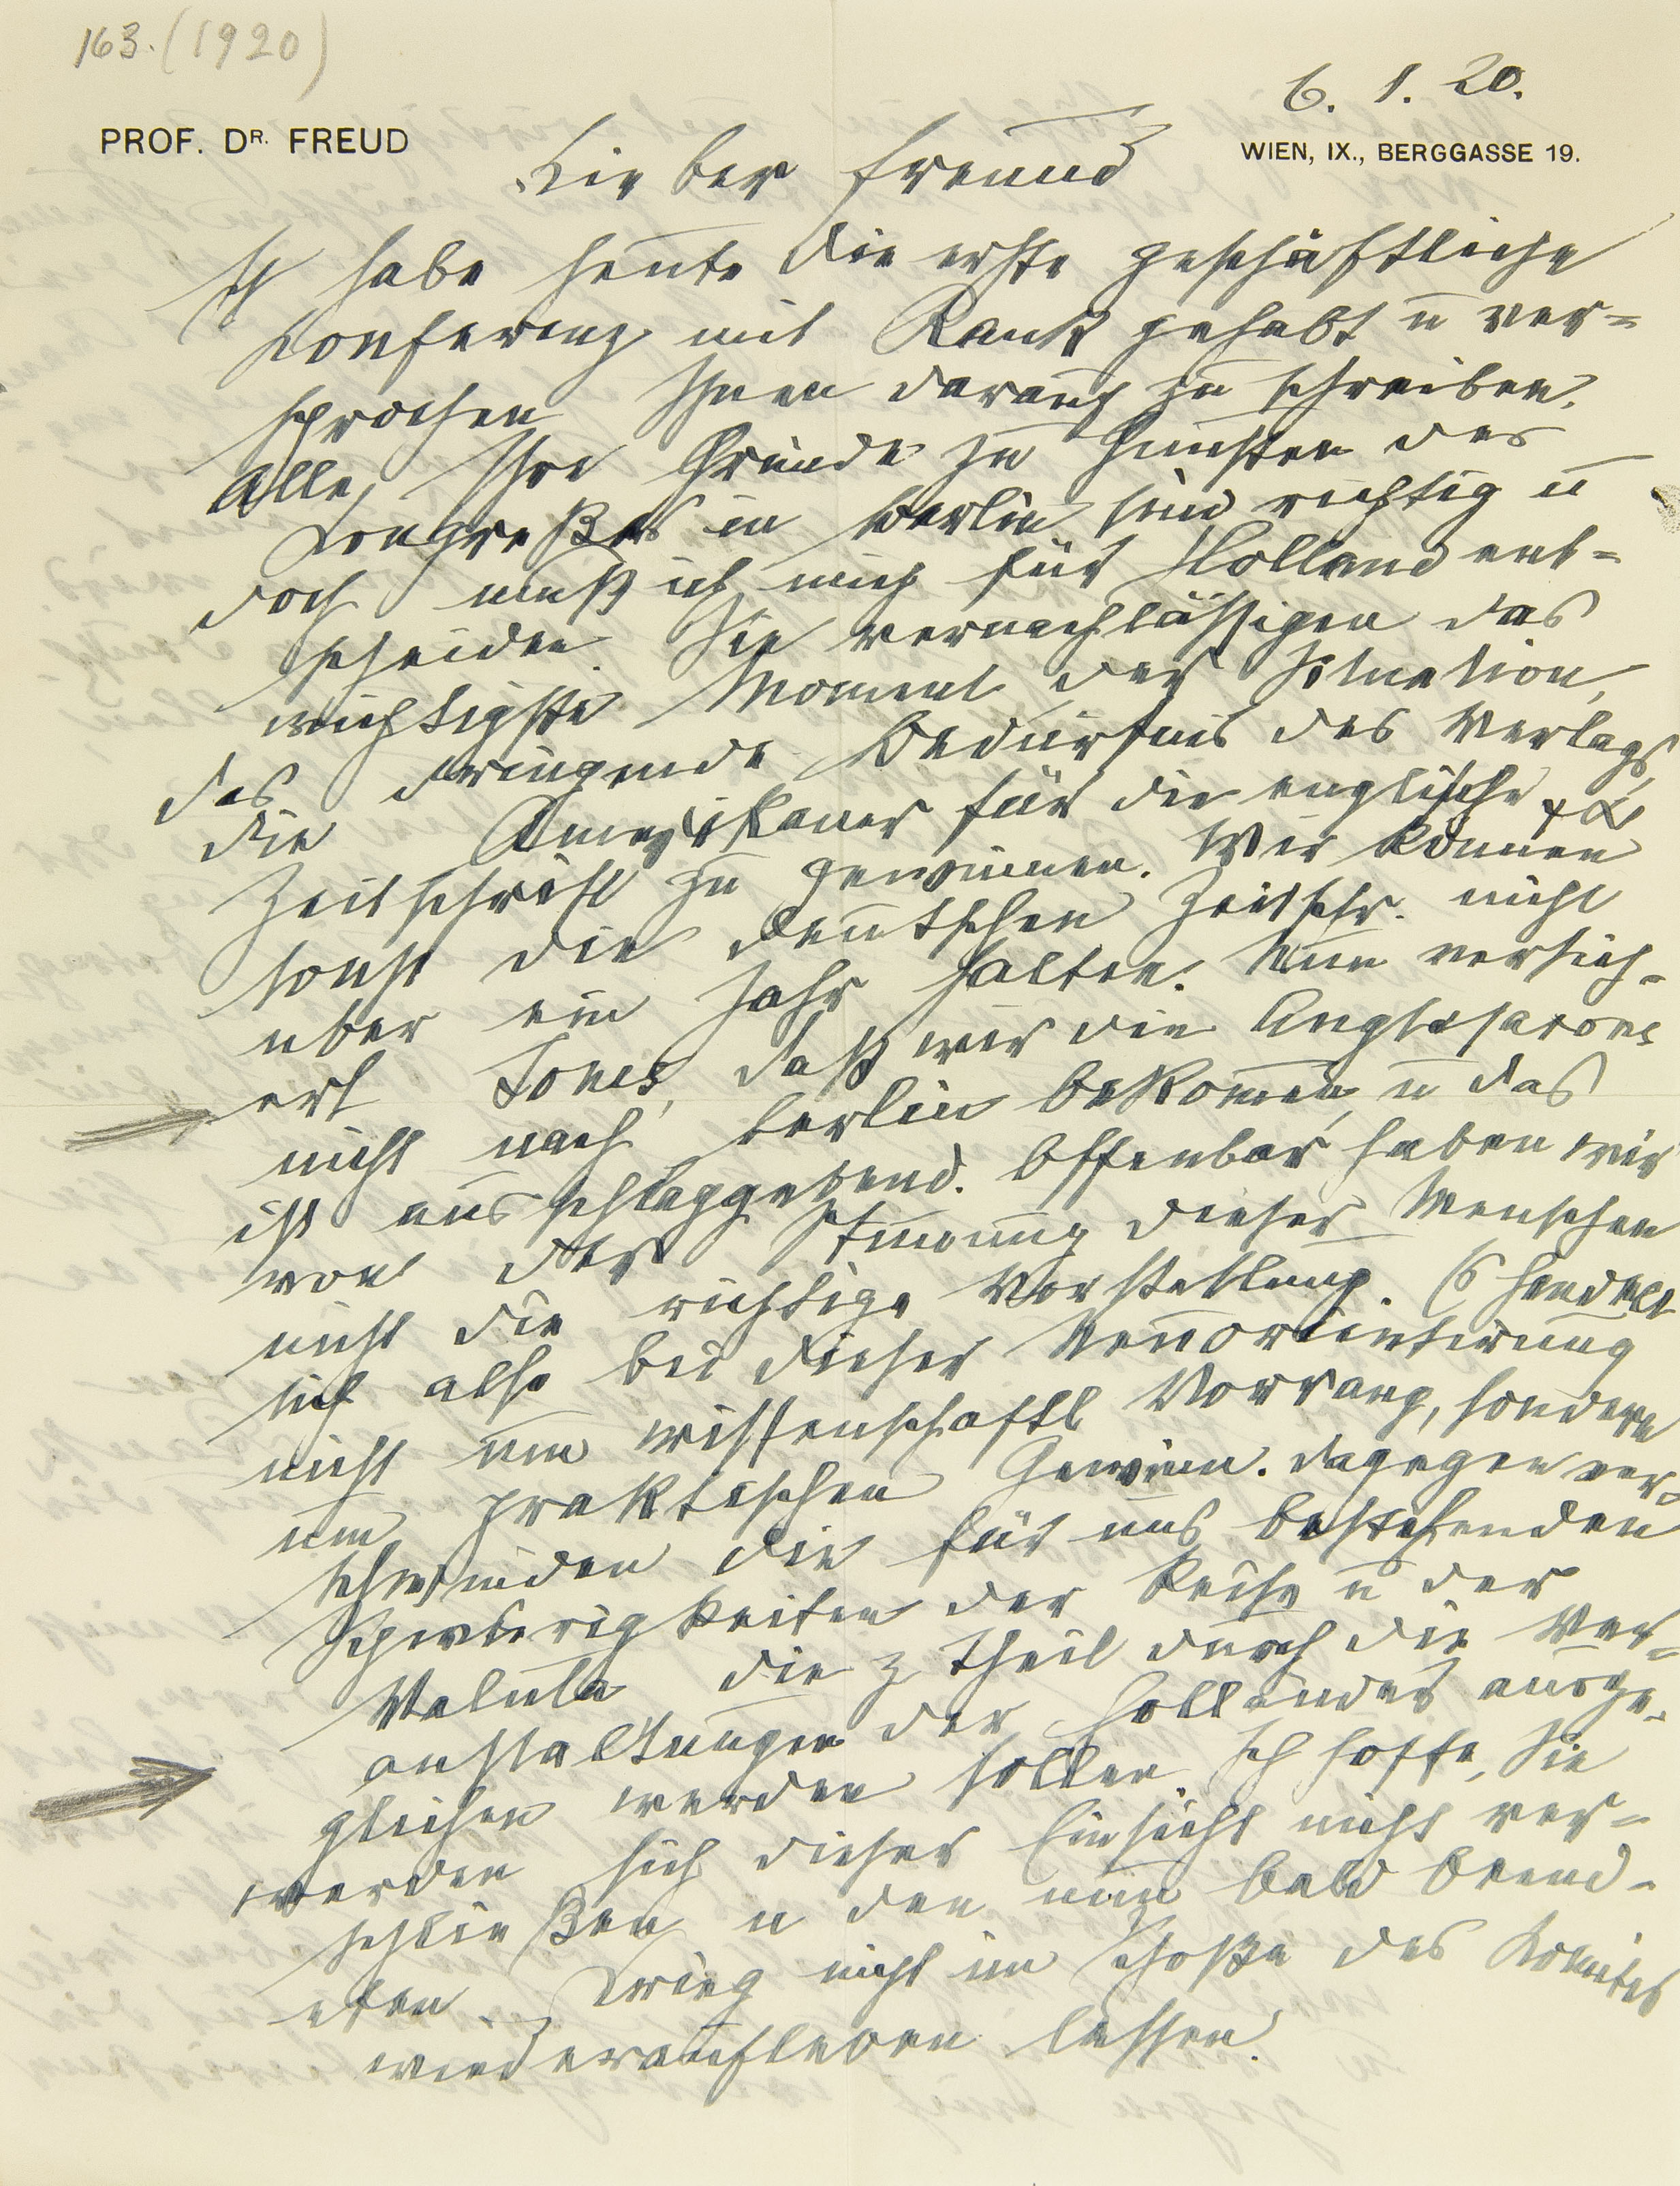 163. (1920)
6. 1. 20.
PROF. DR. FREUD
WIEN, IX., BERGGASSE 19.
Lieber Freund
Ich habe heute die erste geschäftliche
Konferenz mit Rank gehabt u ver-
sprochen Ihnen darauf zu schreiben.
Alle Ihre Gründe zu Gunsten des
Kongreßes in Berlin sind richtig u
doch muß ich mich für Holland ent-
scheiden. Sie vernachlässigen das
wichtigste Moment der Situation,
das dringende Bedürfnis des Verlags,
die Amerikaner für die englische
Zeitschrift zu gewinnen. Wir können
sonst die deutschen Zeitschr. nicht
über ein Jahr halten. Nun versich-
ert Jones, daß wir die Anglosaxons
nicht nach Berlin bekommen, u das
ist ausschlaggebend. Offenbar haben wir
von der Stimmung dieser Menschen
nicht die richtige Vorstellung. Es handelt
sich also bei dieser Neuorientirung
nicht um wissenschaftl Vorrang, sondern
um praktischen Gewinn. Dagegen ver-
schwinden die für uns bestehenden
Schwierigkeiten der Reise u der
Valuta die z Theil durch die Ver-
anstaltungen der Holländer ausge-
glichen werden sollen. Ich hoffe, Sie
werden sich dieser Einsicht nicht ver-
schließen u den nun bald beend-
eten Krieg nicht im Schoße des Komites
wiederaufleben lassen.